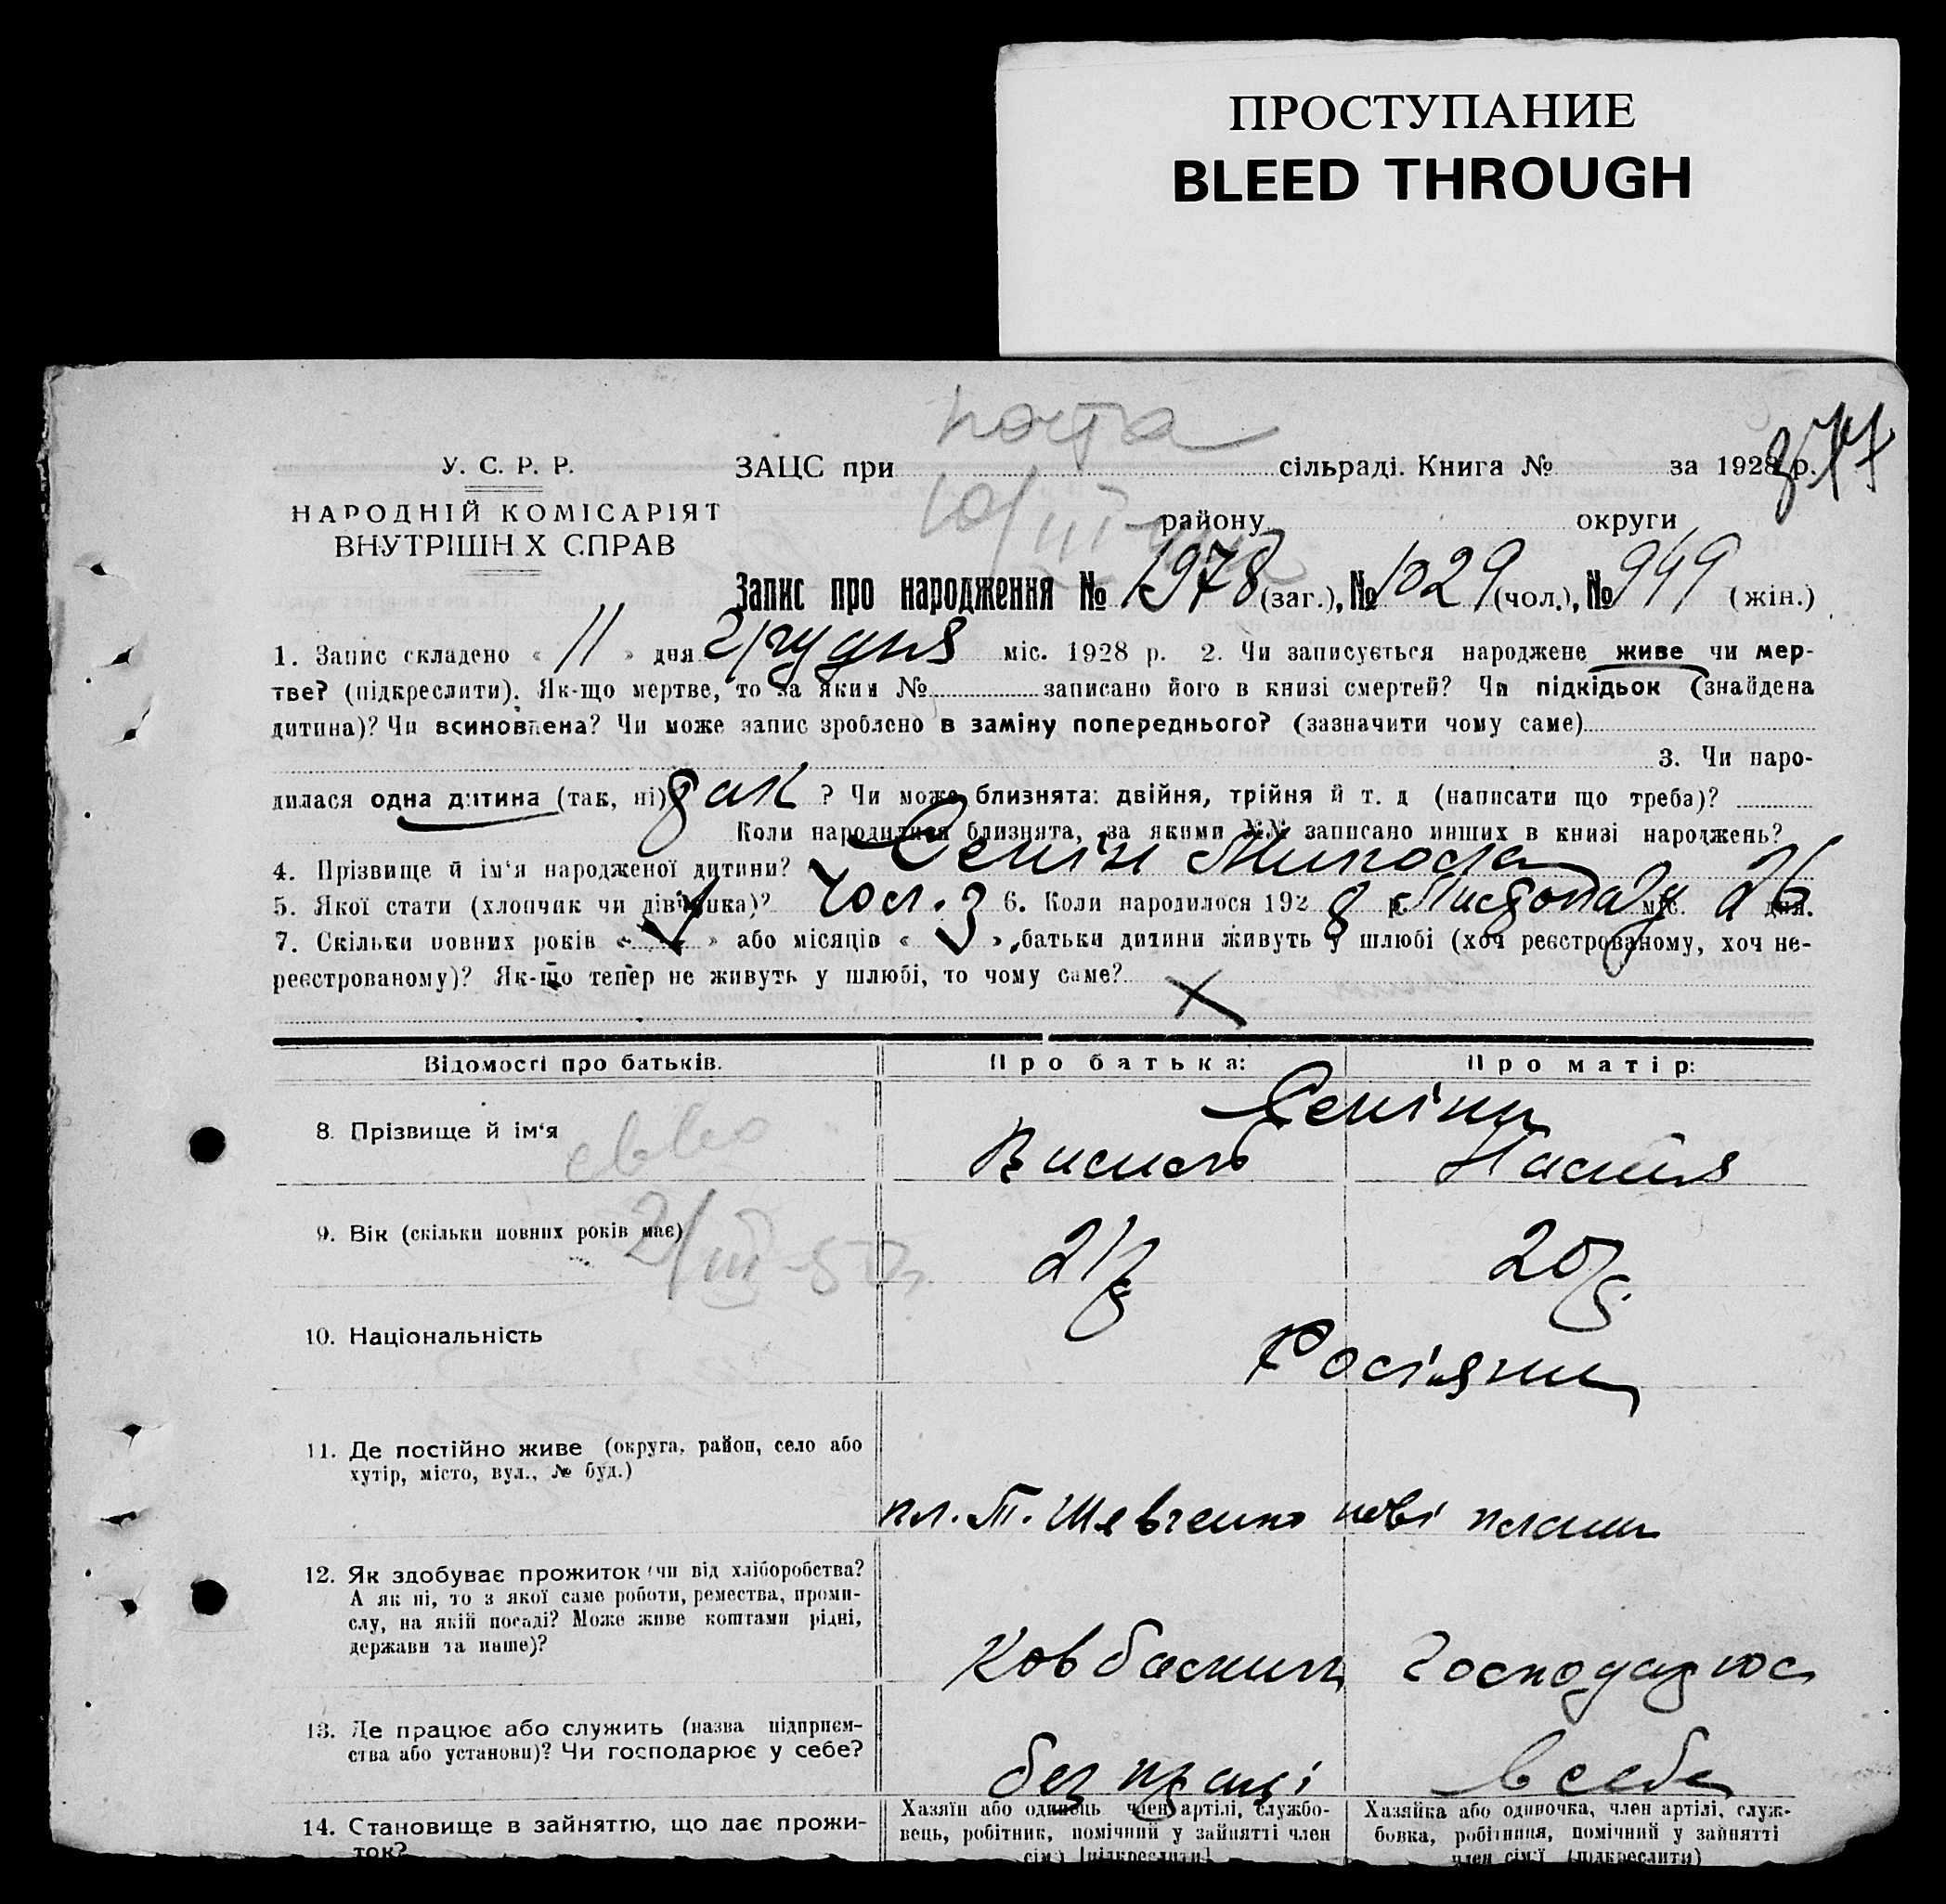 ПРОСТУПАНИЕ
BLEED THROUGH
почта
377
У. С. Р. Р.
ЗАЦС при сільраді. Книга № за 1928 р.
НАРОДНІЙ КОМІСАРІЯТ
ВНУТРІШН Х СПРАВ
10/III
району округи
Запис про народження № 1978 (заг.), № 1029 (чол.), № 949 (жін.)
1. Запис складено « 11 » дня Грудня міс. 1928 р. 2. Чи записується народжене живе чи мер-
тве? (підкреслити). Як-що мертве, то за яким № записано його в книзі смертей? Чи підкідьок (знайдена
дитина)? Чи всиновлена? Чи може запис зроблено в заміну попереднього? (зазначити чому саме)
3. Чи наро-
дилася одна дитина (так, ні) так ? Чи може близнята: двійня, трійня й т. д (написати що треба)?
Коли народилися близнята, за якими №№ записано инших в книзі народжень?
4. Прізвище й ім'я народженої дитини? Семін Микола
5. Якої стати (хлопчик чи дівчинка)? чол. 3 6. Коли народилося 192 8 р. Листопаду міс. 26 дня.
7. Скільки повних років « » або місяців « » батьки дитини живуть у шлюбі (хоч реєстрованому, хоч не-
реєстрованому)? Як-що тепер не живуть у шлюбі, то чому саме?
Відомості про батьків. Про батька: Про матір:
Семіни
8. Прізвище й ім'я Василь Настя
9. Вік (скільки повних років має) 21 р 20 р.
2/III-5
10. Національність Росіяни
11. Де постійно живе (округа, район, село або
хутір, місто, вул., № буд.)
пл. Т. Шевченко нові плани
12. Як здобуває прожиток (чи від хліборобства?
А як ні, то з якої саме роботи, ремества, проми-
слу, на якій посаді? Може живе коштами рідні,
держави та инше)?
Ковбасник Господарює
13. Де працює або служить (назва підприєм-
ства або установи)? Чи господарює у себе?
без праці в себе
14. Становище в зайняттю, що дає прожи-
ток?
Хазяїн або одинець член артілі, службо-
вець, робітник, помічний у зайнятті член
сім'ї (підкреслити)
Хазяйка або одиночка, член артілі, служ-
бовка, робітниця, помічний у зайнятті
член сім'ї (підкреслити)